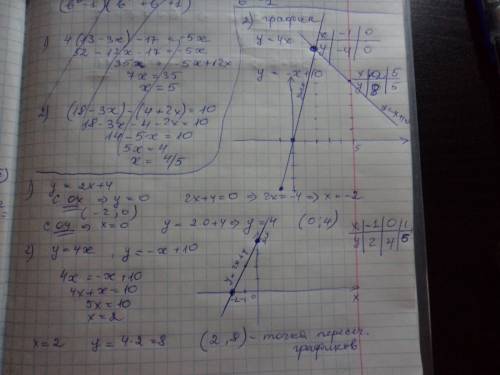 1) 4(13-3x)-17=-5x
52-12x-17=-5x
35x=-5x+12x
7x=35
x=5
2) (18-3x)-(4+2x)=10
18-3x-4-2x=10
14-5x=10
5x=4
x=4/5
2) графики
y=4x
x|-1|0
y|-4|0
y=-x+10
x|2|5
y|8|5
y=4x
y=-x+10
5
1) y=2x+4
с OX => y=0 2x+4=0 => 2x=-4 => x=-2
(-2;0)
с OY => x=0 y=2·0+4 => y=4 (0;4)
x|-1|0|1
y|2|4|5
2) y=4x, y=-x+10
4x=-x+10
4x+x=10
5x=10
x=2
y=2x+4
-2 -1 0
x
x=2 y=4·2=8 (2;8) - точка пересеч.
графиков